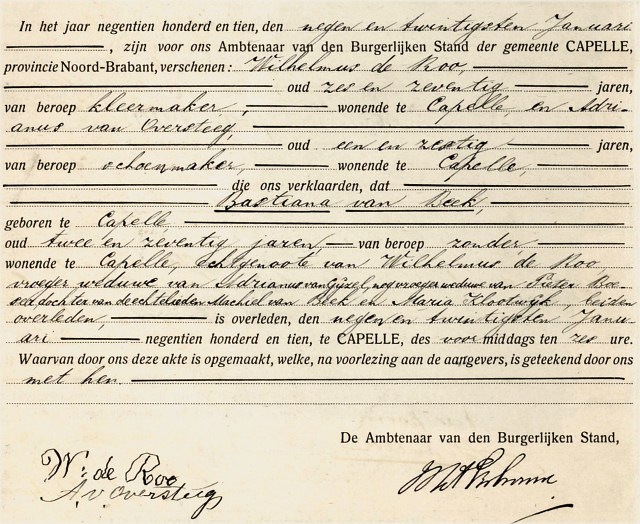 In het jaar negentien honderd en tien, den negen en twintigsten Januari
, zijn voor ons Ambtenaar van den Burgerlijken Stand der gemeente CAPELLE,
provincie Noord-Brabant, verschenen: Wilhelmus de Roo,
oud zes en zeventig jaren,
van beroep kleermaker, wonende te Capelle en Adri-
anus van Oversteeg,
oud een en zestig jaren,
van beroep schoenmaker, wonende te Capelle,
die ons verklaarden, dat
Bastiana van Beek,
geboren te Capelle,
oud twee en zeventig jaren, van beroep zonder
wonende te Capelle, echtgenoote van Wilhelmus de Roo
vroeger weduwe van Adrianus van Gijzel, nog vroeger weduwe van Pieter
dochter van de echtelieden Machiel van Beek en Maria Klootwijk, beiden
overleden, is overleden, den negen en twintigsten Janu-
ari negentien honderd en tien, te CAPELLE, des voormiddags ten zes ure.
Waarvan door ons deze akte is opgemaakt, welke, na voorlezing aan de aangevers, is geteekend door ons
met hen.
De Ambtenaar van den Burgerlijken Stand,
W: de Roo
A. v Oversteeg